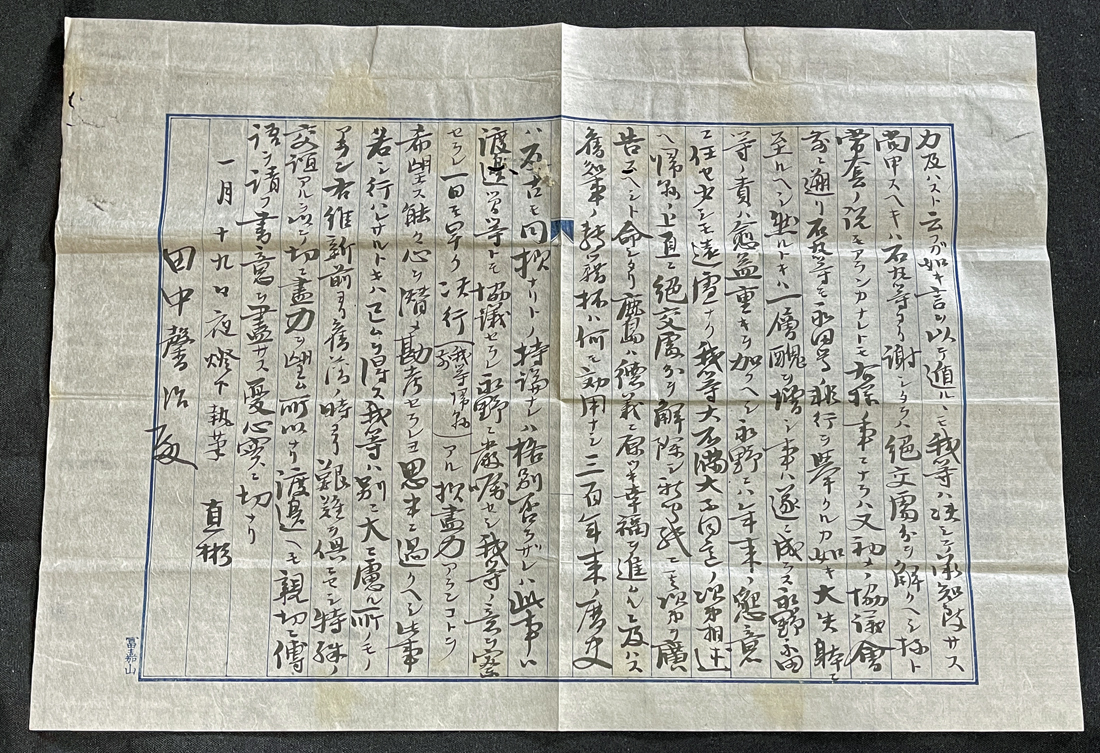 力及ハスト云フガ如キ言ヲ以テ遁ルヽモ我等ハ決シテ承知致サス
尚甲スヘキハ石丸等ヨリ謝シタラハ絶交処分ヲ解クヘシ抔ト
常套ノ説モアランカナレトモ右様ノ事ニテハ又初メノ協議会
ニ遡リ石丸等モ永田等非行ヲ挙クルカ如キ大失躰ニ
至ルヘシ然ルトキハ一層醜ヲ増シ事ハ遂ニ成ラス永野
等ノ責ハ愈益重キヲ加フヘシ永野ニハ年来ノ懇意
ニ任セ
モ遠慮ナク我等大不満大不同意ノ次第相述
ヘ帰県ノ上直ニ絶交処分ヲ解除シ
告クヘシト命シタリ鹿島ハ徳義ニ原ツキ幸福ヲ進ムニ及ハス
旧知事ノ
抔ハ何ノ効用ナシ三百年来ノ歴史
ハ反古モ同様ナリトノ持論ナレハ格別否ラザレハ此事ハ
渡邊
等トモ協議セラレ永野ニ厳嘱セシ我等ノ意ヲ察
セラレ一日モ早ク決行(我等帰県前)アル様尽力アランコトヲ
希望ス能々心ヲ潜メ勘考セラレヨ思半ニ過クヘシ此事
若シ行ハレサルトキハ已ムヲ得ス我等ハ別ニ大ニ慮ル所ノモノ
アラン君維新前ヨリ
時ヨリ艱難ヲ倶ニセシ特殊ノ
交誼アルヲ以テ切ニ尽力ヲ望ム所以ナリ渡邊ヘモ親切ニ傳
語ヲ請フ書意ヲ盡サス憂心実ニ切ナリ
一月十九日夜燈下執筆
直彬
田中馨治殿
冨嘉山